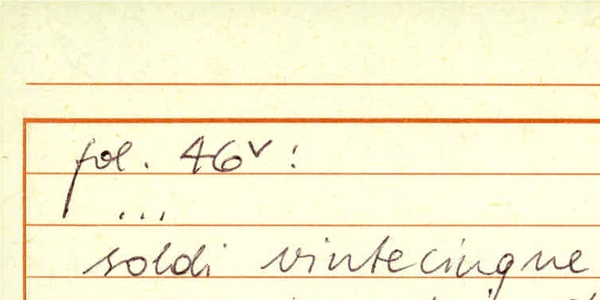 fol. 46v:
...
soldi vintecinque